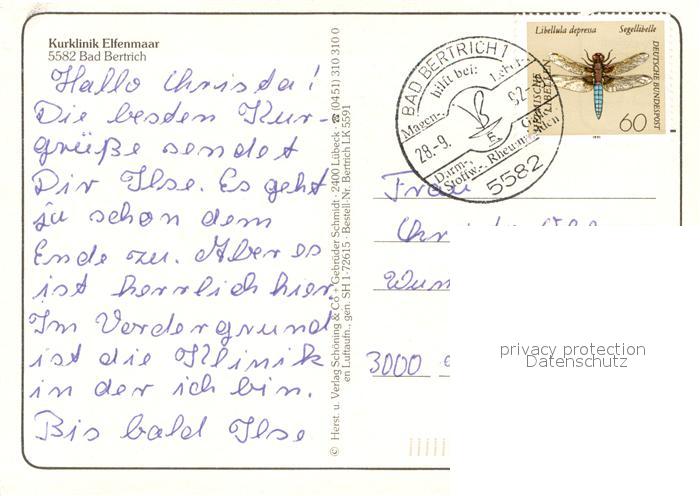 Kurklinik Elfenmaar
5582 Bad Bertrich
Hallo Christa!
Die besten Kur-
grüße sendet
Dir Ilse. Es geht
zu schon dem
Ende zu. Aber es
ist herrlich hier.
Im Vordergrund
ist die Klinik
in der ich bin.
Bis bald Ilse
© Herst. u. Verlag Schöning & Co + Gebrüder Schmidt · 2400 Lübeck · ☎ (0451) 310 310 0
en Luftaufn., gen. SH 1-72615 · Bestell-Nr. Bertrich LK 5591
BAD BERTRICH 1
hilft bei:
Leber-
Magen-,
Galle
28.-9.
92-
Darm-,
Stoffw.-, Rheuma
5582
Libellula depressa Segellibelle
DEUTSCHE BUNDESPOST
60
Frau
3000
privacy protection
Datenschutz